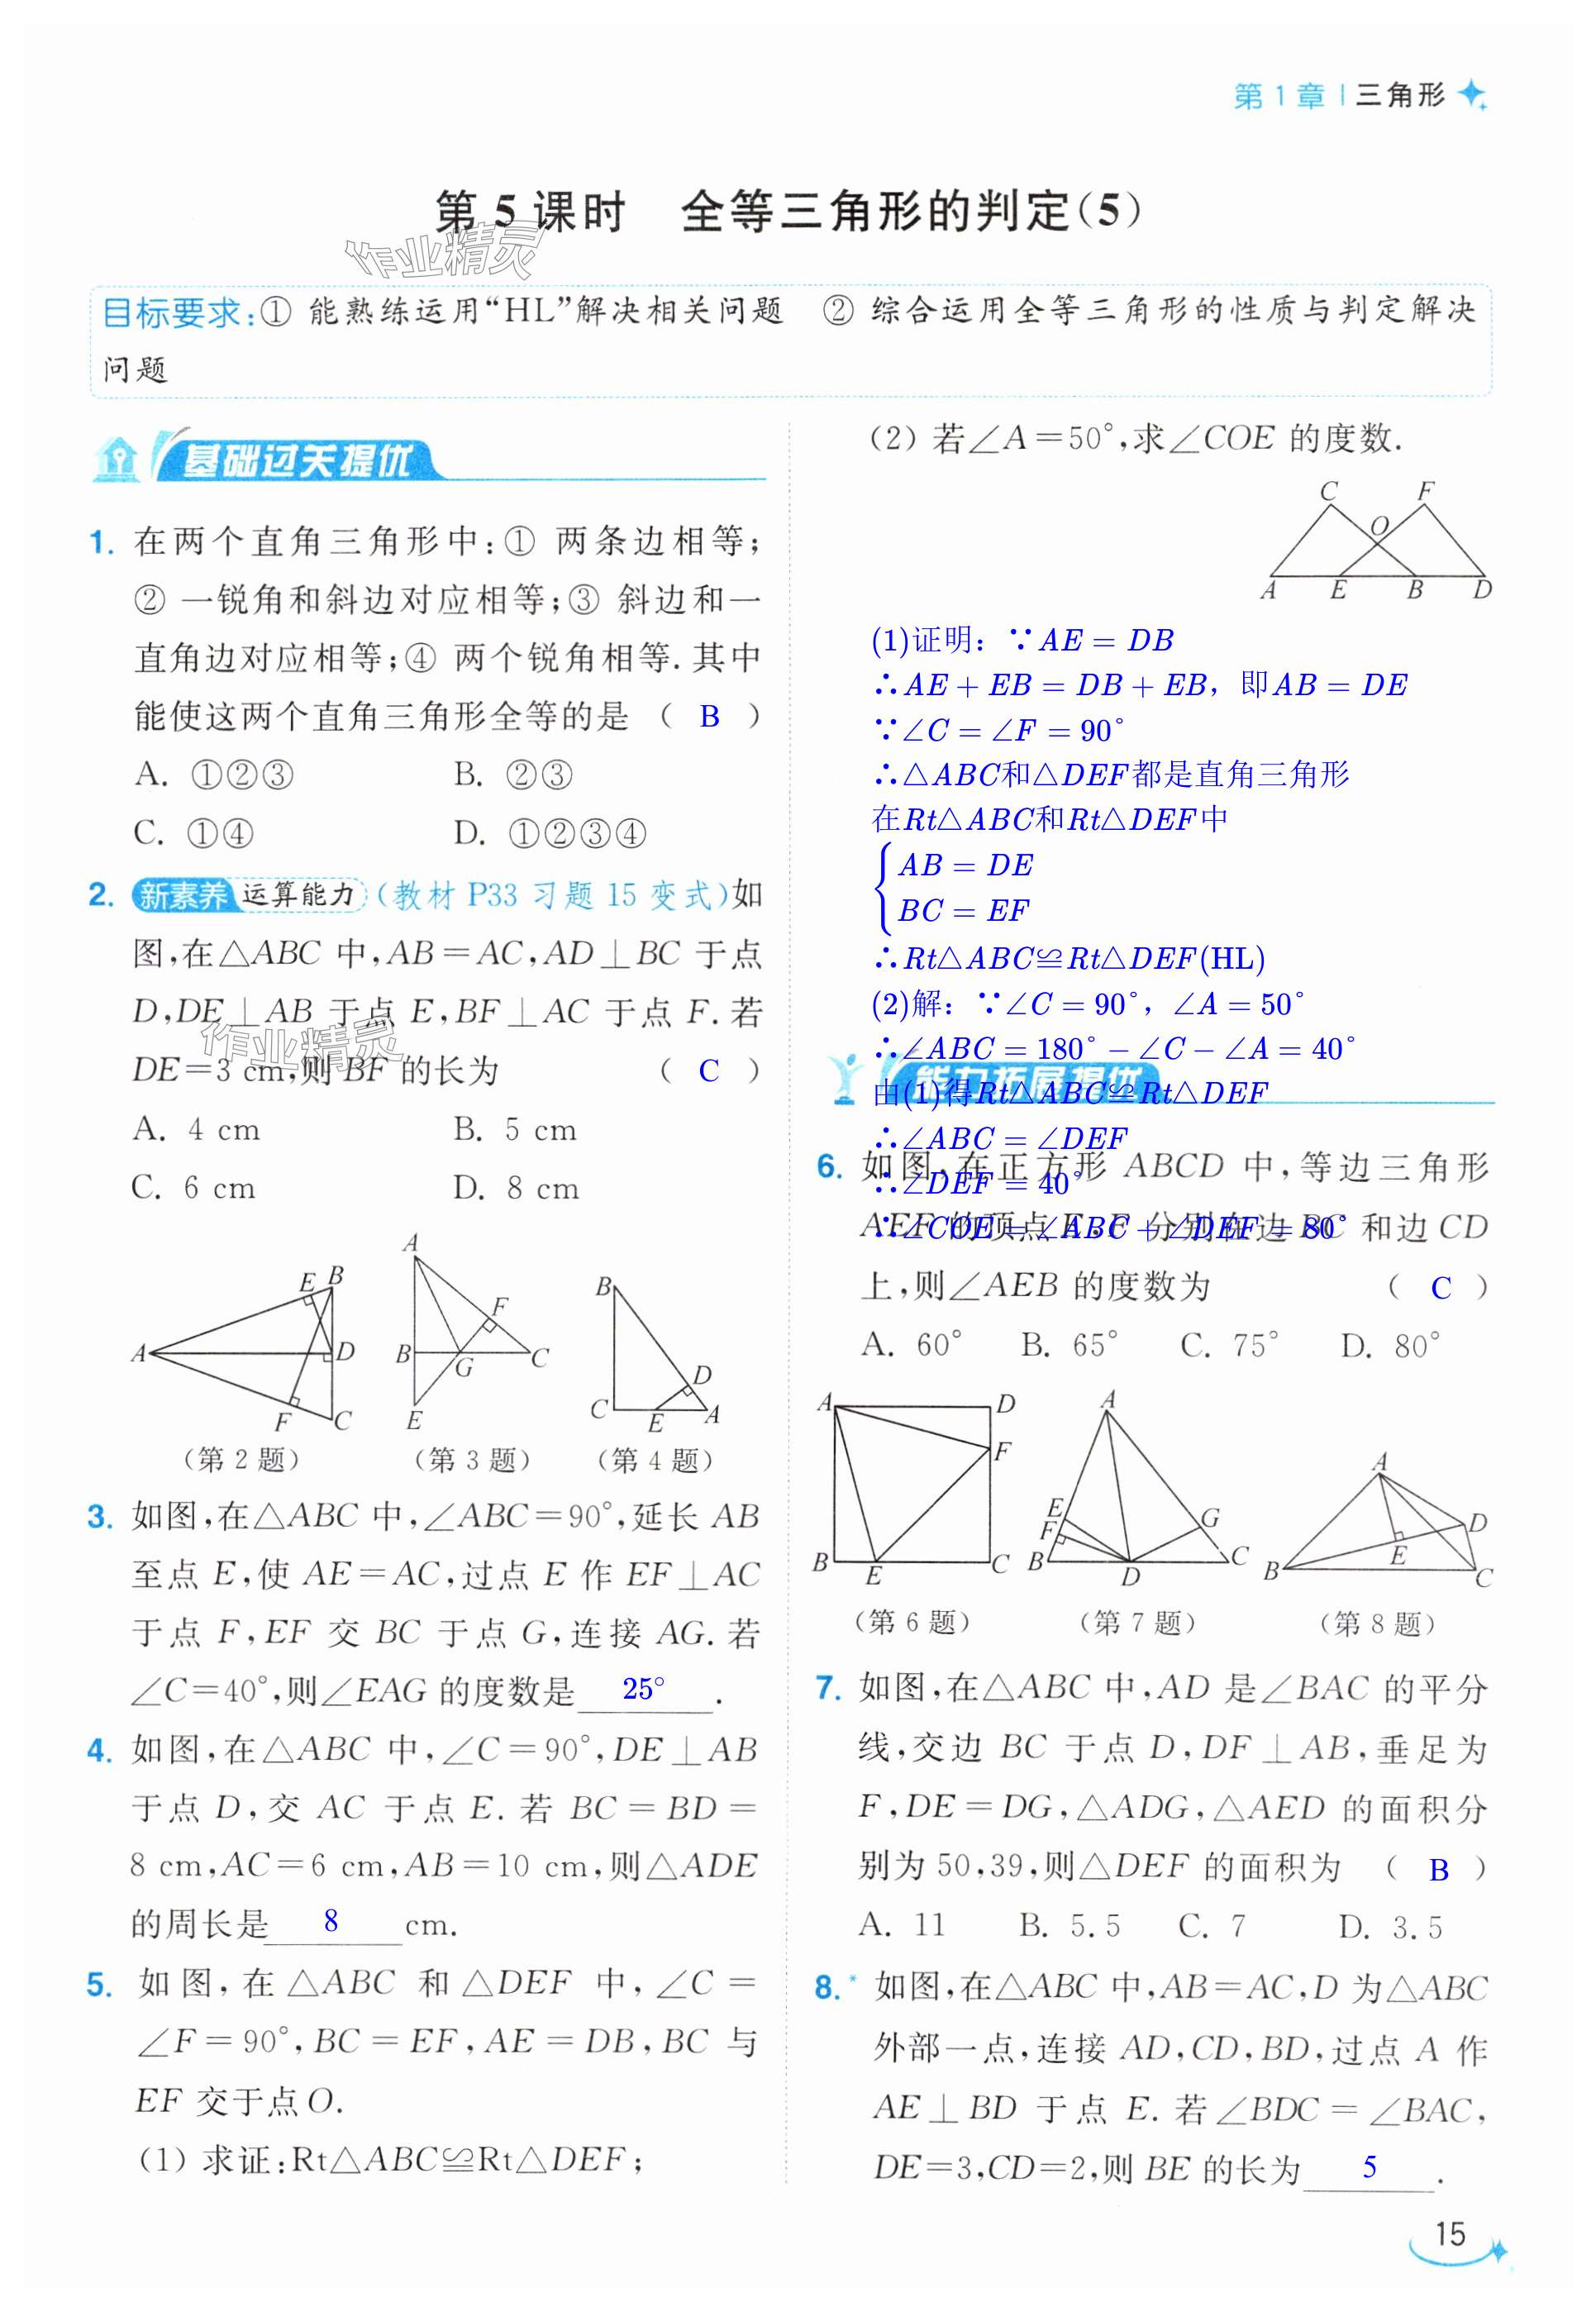 第1章 | 三角形
第 5 课时　全等三角形的判定(5)
目标要求:① 能熟练运用“HL”解决相关问题　② 综合运用全等三角形的性质与判定解决
问题
基础过关提优
1. 在两个直角三角形中:① 两条边相等;
② 一锐角和斜边对应相等;③ 斜边和一
直角边对应相等;④ 两个锐角相等.其中
能使这两个直角三角形全等的是 ( B )
A. ①②③　B. ②③
C. ①④　D. ①②③④
2. 新素养 运算能力 (教材 P33 习题 15 变式)如
图,在△ABC 中,AB=AC,AD⊥BC 于点
D,DE⊥AB 于点 E,BF⊥AC 于点 F.若
DE=3 cm,则 BF 的长为 ( C )
A. 4 cm　B. 5 cm
C. 6 cm　D. 8 cm
A E B D F C
A F B G C E
B D C E A
(第 2 题)　(第 3 题)　(第 4 题)
3. 如图,在△ABC 中,∠ABC=90°,延长 AB
至点 E,使 AE=AC,过点 E 作 EF⊥AC
于点 F,EF 交 BC 于点 G,连接 AG.若
∠C=40°,则∠EAG 的度数是 25° .
4. 如图,在△ABC 中,∠C=90°,DE⊥AB
于点 D,交 AC 于点 E.若 BC=BD=
8 cm,AC=6 cm,AB=10 cm,则△ADE
的周长是 8 cm.
5. 如图,在△ABC 和△DEF 中,∠C=
∠F=90°,BC=EF,AE=DB,BC 与
EF 交于点O.
(1) 求证:Rt△ABC≌Rt△DEF;
(2) 若∠A=50°,求∠COE 的度数.
C F O A E B D
(1)证明：∵AE=DB
∴AE+EB=DB+EB，即AB=DE
∵∠C=∠F=90°
∴△ABC和△DEF都是直角三角形
在Rt△ABC和Rt△DEF中
AB=DE
BC=EF
∴Rt△ABC≌Rt△DEF(HL)
(2)解：∵∠C=90°，∠A=50°
∴∠ABC=180°−∠C−∠A=40°
由(1)得Rt△ABC≌Rt△DEF
∴∠ABC=∠DEF
∴∠DEF=40°
∴∠COE=∠ABC+∠DEF=80°
能力拓展提优
6. 如图,在正方形 ABCD 中,等边三角形
AEF 的顶点 E,F 分别在边 BC 和边 CD
上,则∠AEB 的度数为 ( C )
A. 60°　B. 65°　C. 75°　D. 80°
A D F B E C
A E F B D G C
A D E B C
(第 6 题)　(第 7 题)　(第 8 题)
7. 如图,在△ABC 中,AD 是∠BAC 的平分
线,交边 BC 于点 D,DF⊥AB,垂足为
F,DE=DG,△ADG,△AED 的面积分
别为 50,39,则△DEF 的面积为 ( B )
A. 11　B. 5.5　C. 7　D. 3.5
8.* 如图,在△ABC 中,AB=AC,D 为△ABC
外部一点,连接 AD,CD,BD,过点 A 作
AE⊥BD 于点 E.若∠BDC=∠BAC,
DE=3,CD=2,则 BE 的长为 5 .
15
作业精灵
作业精灵